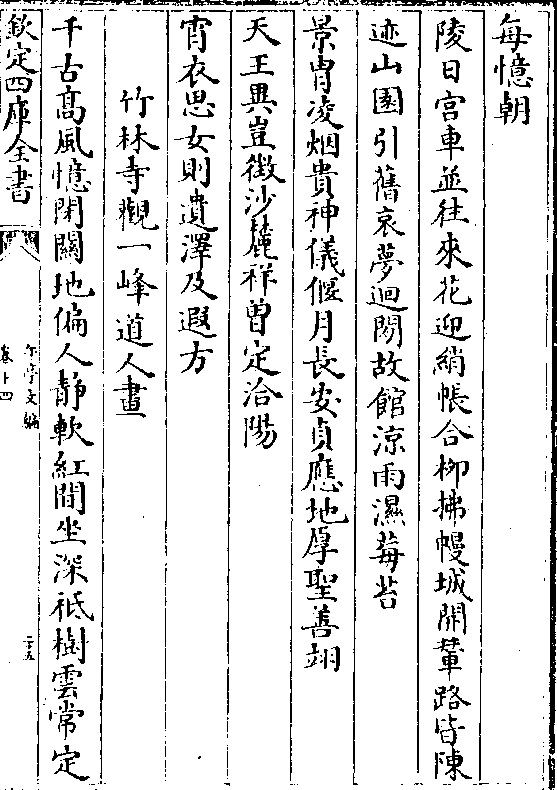 每憶朝
陵日宫車並往來花迎綃帳合栁拂幔城開輦路皆陳
迹山園引舊哀夢迴闗故館涼雨濕莓苔
景胄凌烟貴神儀偃月長安貞應地厚聖善翊
天王異豈徴沙麓祥曽定洽陽
宵衣思女則遺澤及遐方
竹林寺觀一峰道人畫
千古髙風憶閉闗地偏人静軟紅間坐深祗樹雲常定
欽定四庫全書
午亭文編
卷十四
二十五